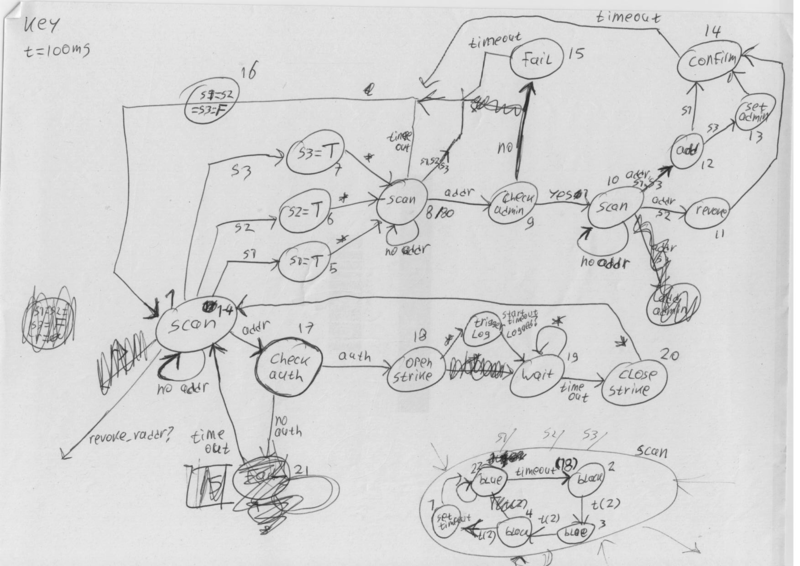 Key
t=100ms
timeout
14
confirm
timeout
Fail
15
16
S1=S2
=S3=F
set
admin
13
S1
S3
time
out
S1S2S3
no
add
12
S3
S3=T
7
*
10
addr
S1,S3
scan
8
addr
check
admin
9
yes
scan
addr
S2
revoke
11
S2
S2=T
6
*
no addr
no addr
S1
S1=T
5
*
1
14
scan
addr
17
check
auth
auth
18
open
strike
*
trigger
Log
start
timeout
*
wait
19
time
out
*
20
close
strike
no addr
revoke_raddr?
time
out
no
auth
21
S1
S2
S3
scan
22
blue
timeout(18)
2
black
t(2)
3
blue
t(2)
4
black
t(2)
t(2)
1
set
timeout